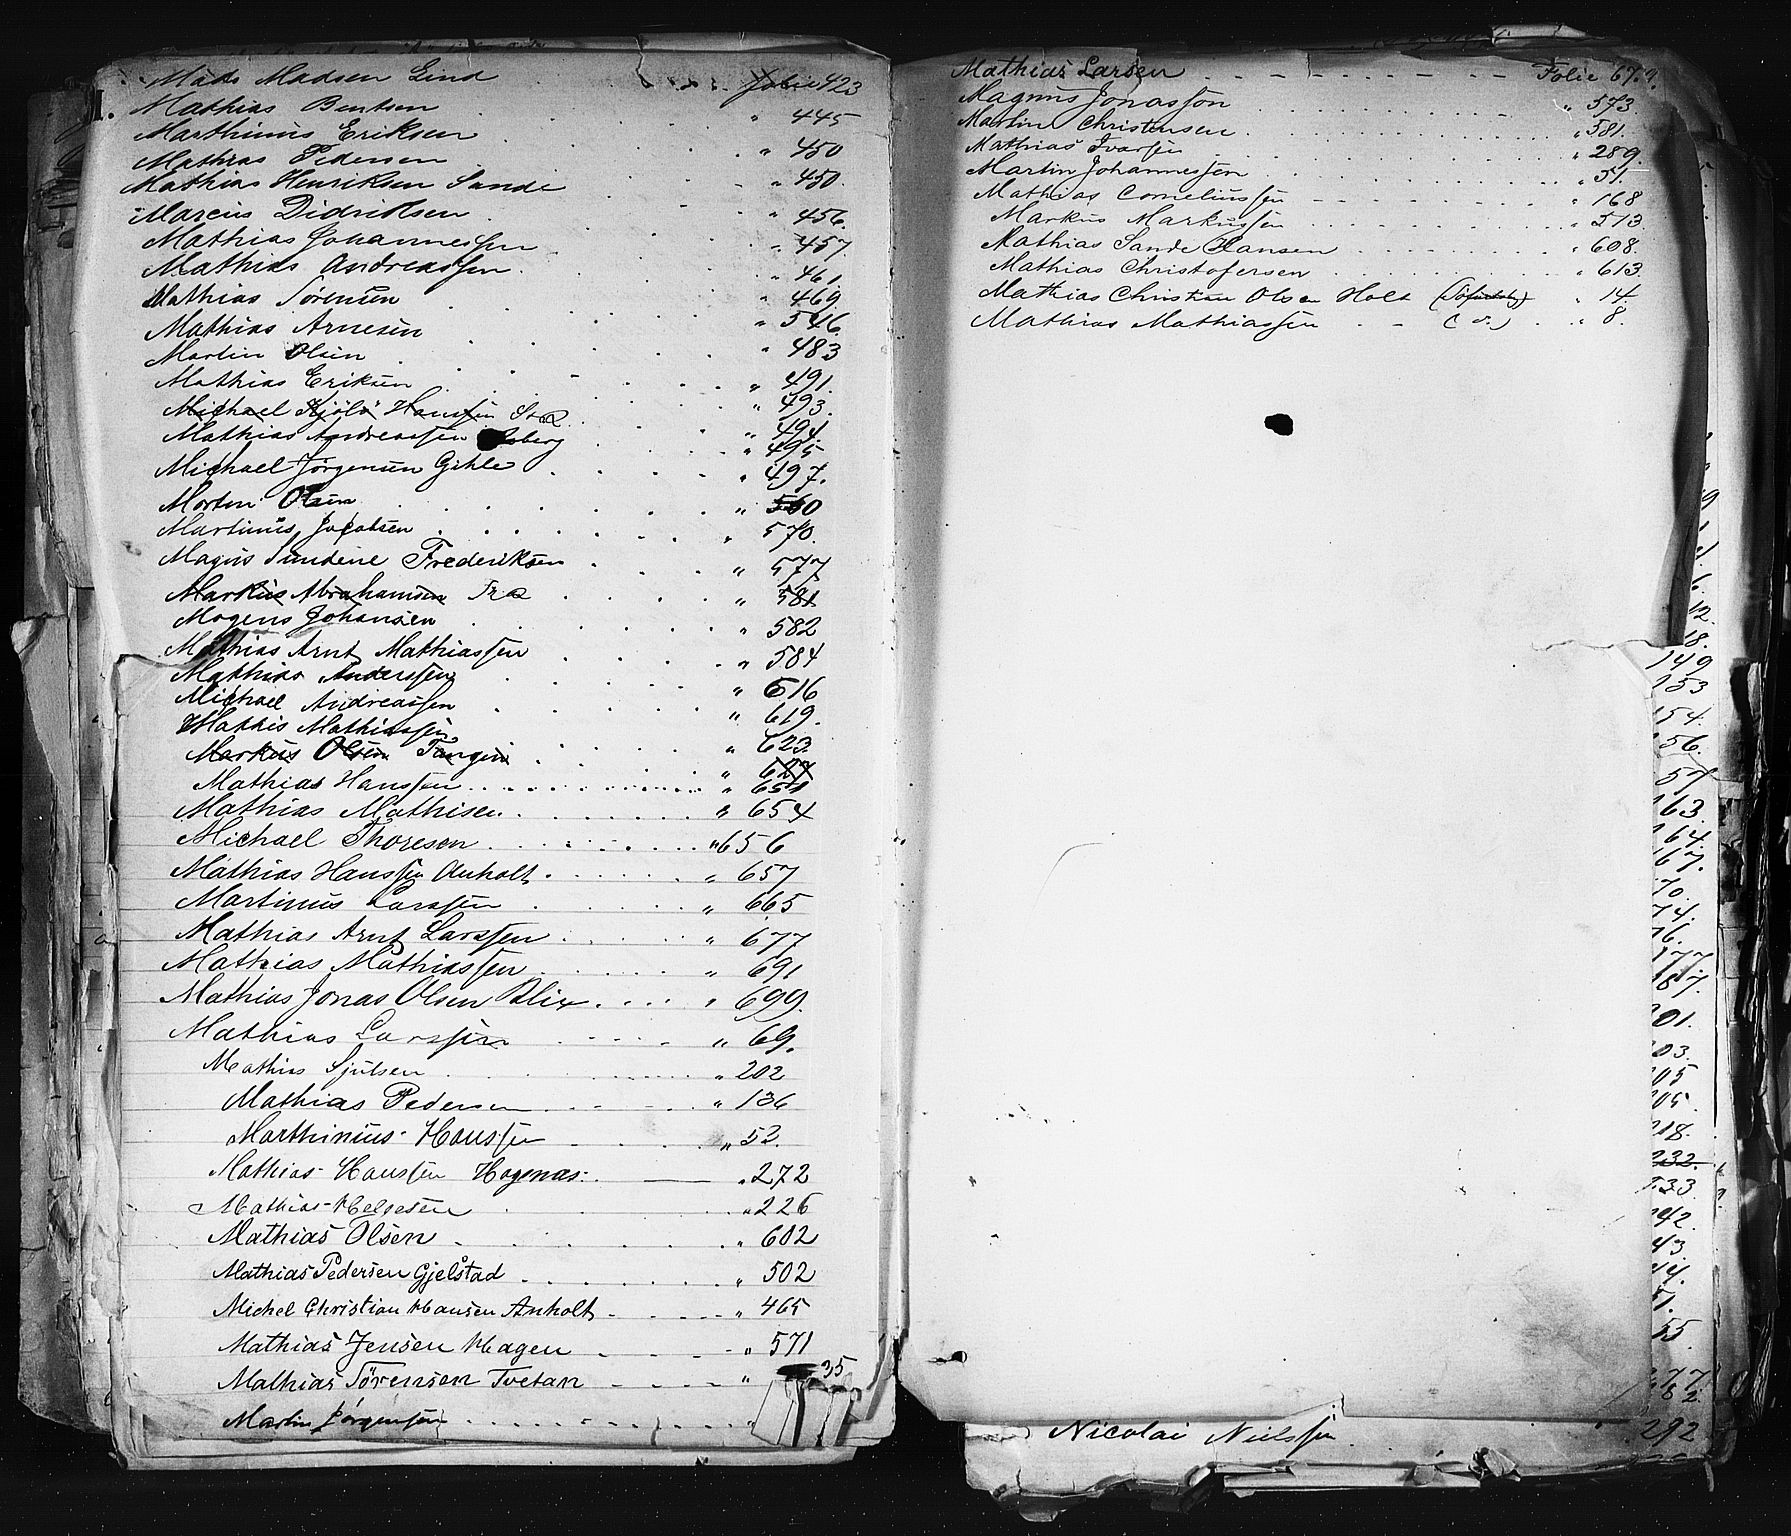 M.
Mads Madsen Lind Folie 423
Mathias Bentsen " 445
Marthinus Eriksen " 450
Mathias Pedersen " 450.
Mathias Henriksen Sande " 456.
Marcus Didriksen " 457.
Mathias Johannessen " 461
Mathias Andreassen " 469.
Mathias Sørensen " 546.
Mathias Arnesen " 483
Martin Olsen " 491.
Mathias Eriksen " 493.
Michael Hanssen " 494.
Mathias Andreassen " 495
Michael Jørgensen Gihle " 497.
Morten Olsen " 560
Martinus Jacobsen " 570.
Magnus Sundene Frederiksen " 577
Markus Abrahamsen " 581
Mogens Johansen " 582
Mathias Arnt Mathiassen " 584
Mathias Anderssen " 616
Michael Andreassen " 619.
Mathis Mathiassen " 623.
Markus Olsen Tangen " 627
Mathias Hanssen " 651
Mathias Mathisen " 654
Michael Thoresen " 656
Mathias Hanssen Anholt " 657
Martinus Larssen " 665
Mathias Arnt Larssen " 677
Mathias Mathiassen " 691
Mathias Jonas Olsen Blix " 699.
Mathias Larssen " 69.
Mathias Sjulsen " 202
Mathias Pedersen " 136
Marthinius Hanssen " 52.
Mathias Hanssen Hagenæs " 272
Mathias Helgesen " 226
Mathias Olsen " 602
Mathias Pedersen Gjelstad " 502
Michel Christian Hansen Anholt " 465
Mathias Jensen Hagen " 571
Mathias Sørensen Tvetan " 35
Martin Jørgensen "
Mathias Larsen Folie 679.
Magnus Jonassen " 573
Martin Christensen " 581.
Mathias Ivarsen " 289.
Martin Johannessen " 51.
Mathias Corneliussen " 168
Markus Markussen " 513.
Mathias Sande Hansen " 608.
Mathias Christofersen " 613.
Mathias Christian Olsen Holt " 14.
Mathias Mathiassen " 8.
18.
149
153
154.
156.
57
163.
164.
167.
70.
74.
76.
177
187.
201.
203.
205
205.
218.
232.
233.
242.
43.
44.
51.
55
277
282.
Nicolai Nielssen 292